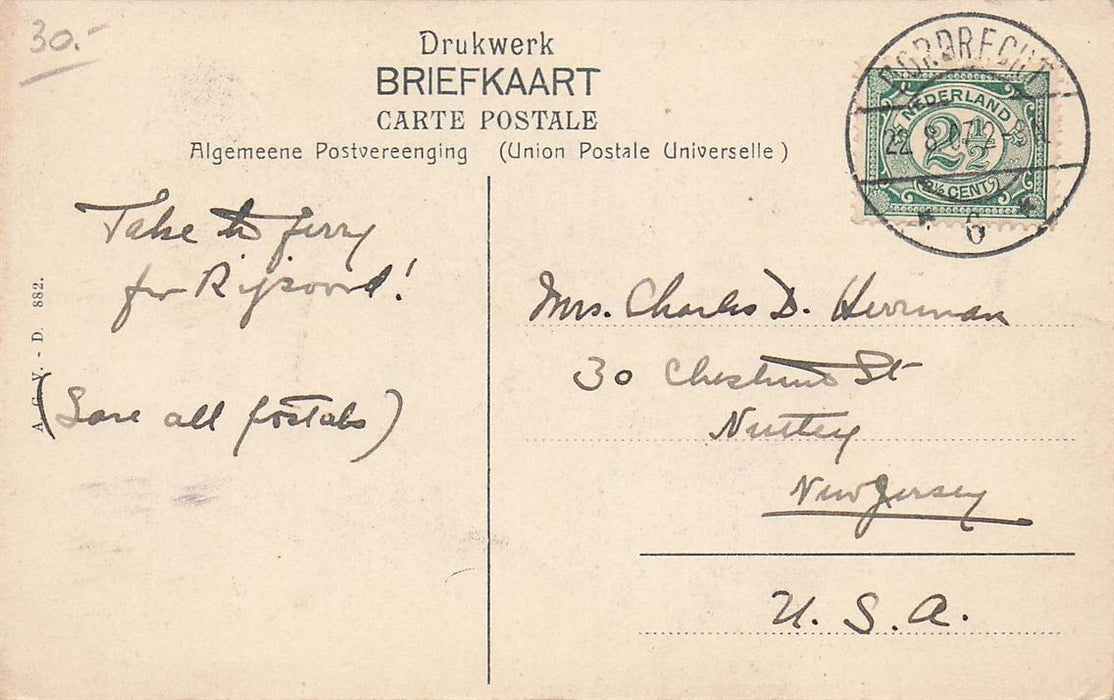 30.-
Drukwerk
BRIEFKAART
CARTE POSTALE
Algemeene Postvereenging (Union Postale Universelle)
DORDRECHT
22. 8 07.2 N
6
NEDERLAND
2½
2½ CENT
Take to ferry
for Rijsoord!
(Save all postals)
A. G. V. - D. 882.
Mrs. Charles D. Herriman
30 Chestnut St
Nutley
New Jersey
U. S. A.